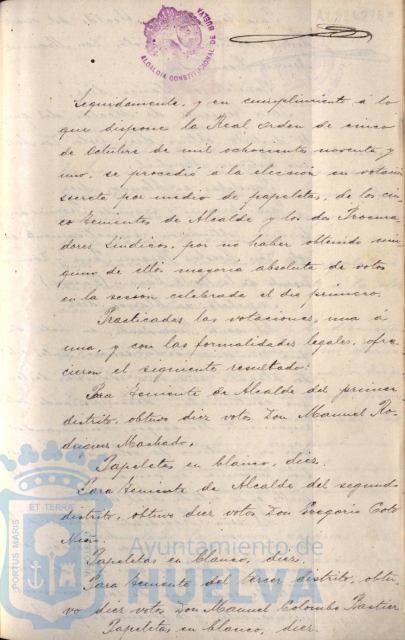 ALCALDIA CONSTITUCIONAL DE HUELVA
Seguidamente, y en cumplimiento á lo
que dispone la Real orden de cinco
de Octubre de mil ochocientos noventa y
uno, se procedió á la elección en votación
secreta por medio de papeletas, de los cin-
co Tenientes de Alcalde y los dos Procura-
dores Síndicos, por no haber obtenido nin-
guno de ellos mayoria absoluta de votos
en la sesión celebrada el dia primero.
Practicadas las votaciones, una á
una, y con las formalidades legales, ofre-
cieron el siguiente resultado:
Para Teniente de Alcalde del primer
distrito, obtuvo diez votos Don Manuel Ro-
driguez Machado.
Papeletas en blanco, diez.
Para Teniente de Alcalde del segundo
distrito, obtuvo diez votos Don Gregorio
Papeletas en blanco, diez.
Para Teniente del tercer distrito, obtu-
vo diez votos Don Manuel Colombo
Papeletas en blanco, diez.
PORTUS MARIS
ET TERRÆ
Ayuntamiento de
HUELVA